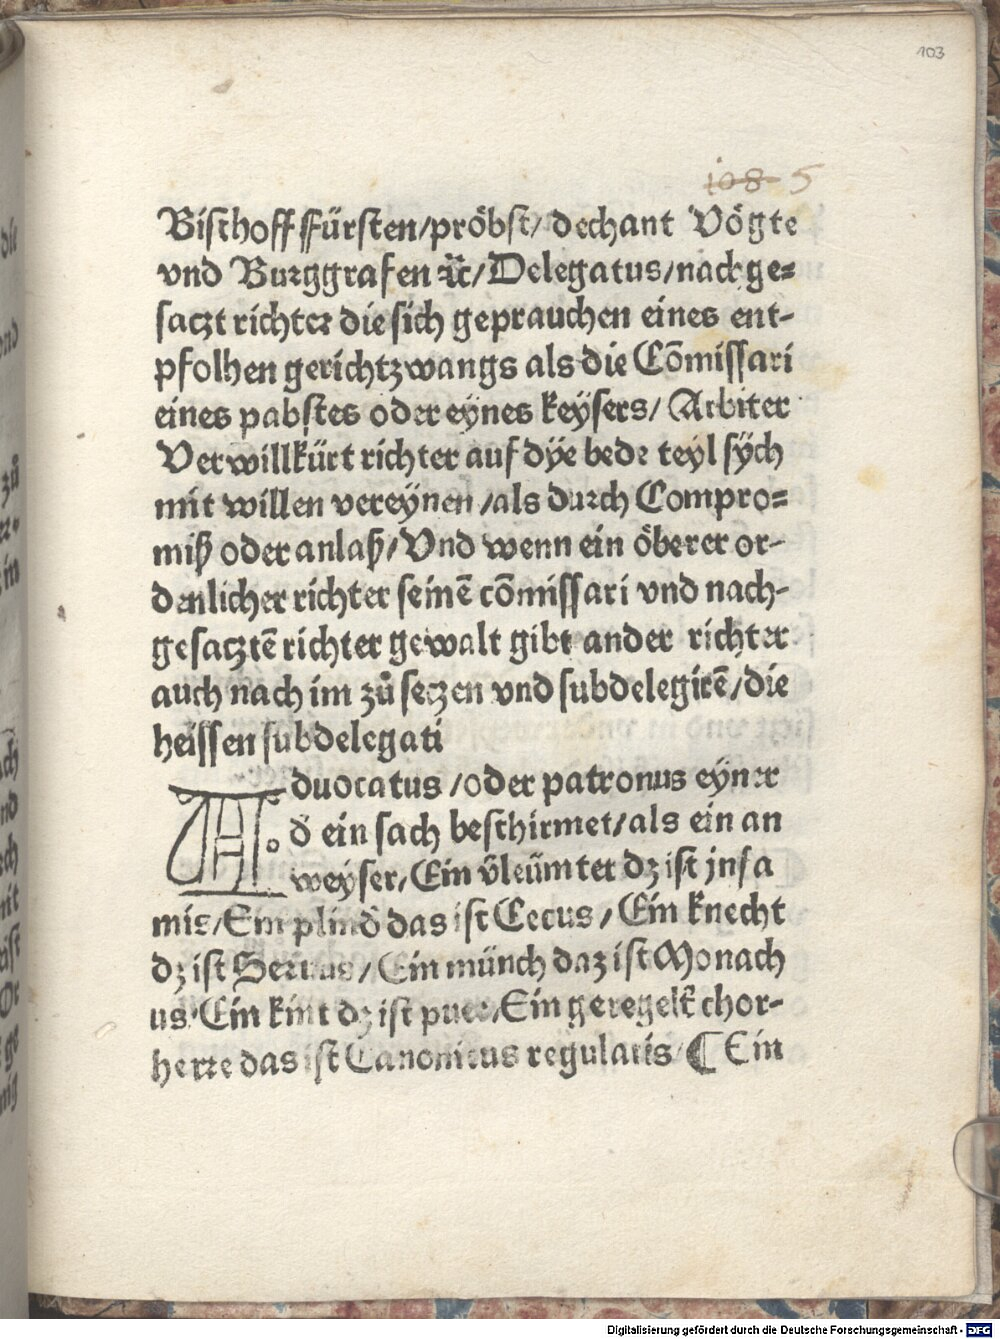 103
108 5
Bischoff Fürsten/pröbst/dechant Vögte
vnd Burggrafen ⁊c̈/Delegatus/nachge⸗
saczt richter die sich geprauchen eines ent-
pfolhen gerichtzwangs als die Cōmissari
eines pabstes oder eÿnes keÿsers/ Arbiter
Verwillkürt richter auf dÿe bede teÿl sÿch
mit willen vereÿnen/als durch Compro⸗
miß oder anlaß/Vnd wenn ein öberer or-
denlicher richter seinē cōmissari vnd nach-
gesacztē richter gewalt gibt ander richter
auch nach im zů seczen vnd subdelegirē/die
heissen subdelegati
Aduocatus/oder patronus eÿner
d̄ ein sach beschirmet/als ein an
weÿser/Ein v̄leümter dz ist jnfa
mis/Ein plind̄ das ist Cecus/Ein knecht
dz ist Seruus/Ein münch daz ist Monach
us·Ein kint dz ist puer/Ein geregelt̄ chor-
herre das ist Canonicus regularis/¶ Ein
Digitalisierung gefördert durch die Deutsche Forschungsgemeinschaft - DFG